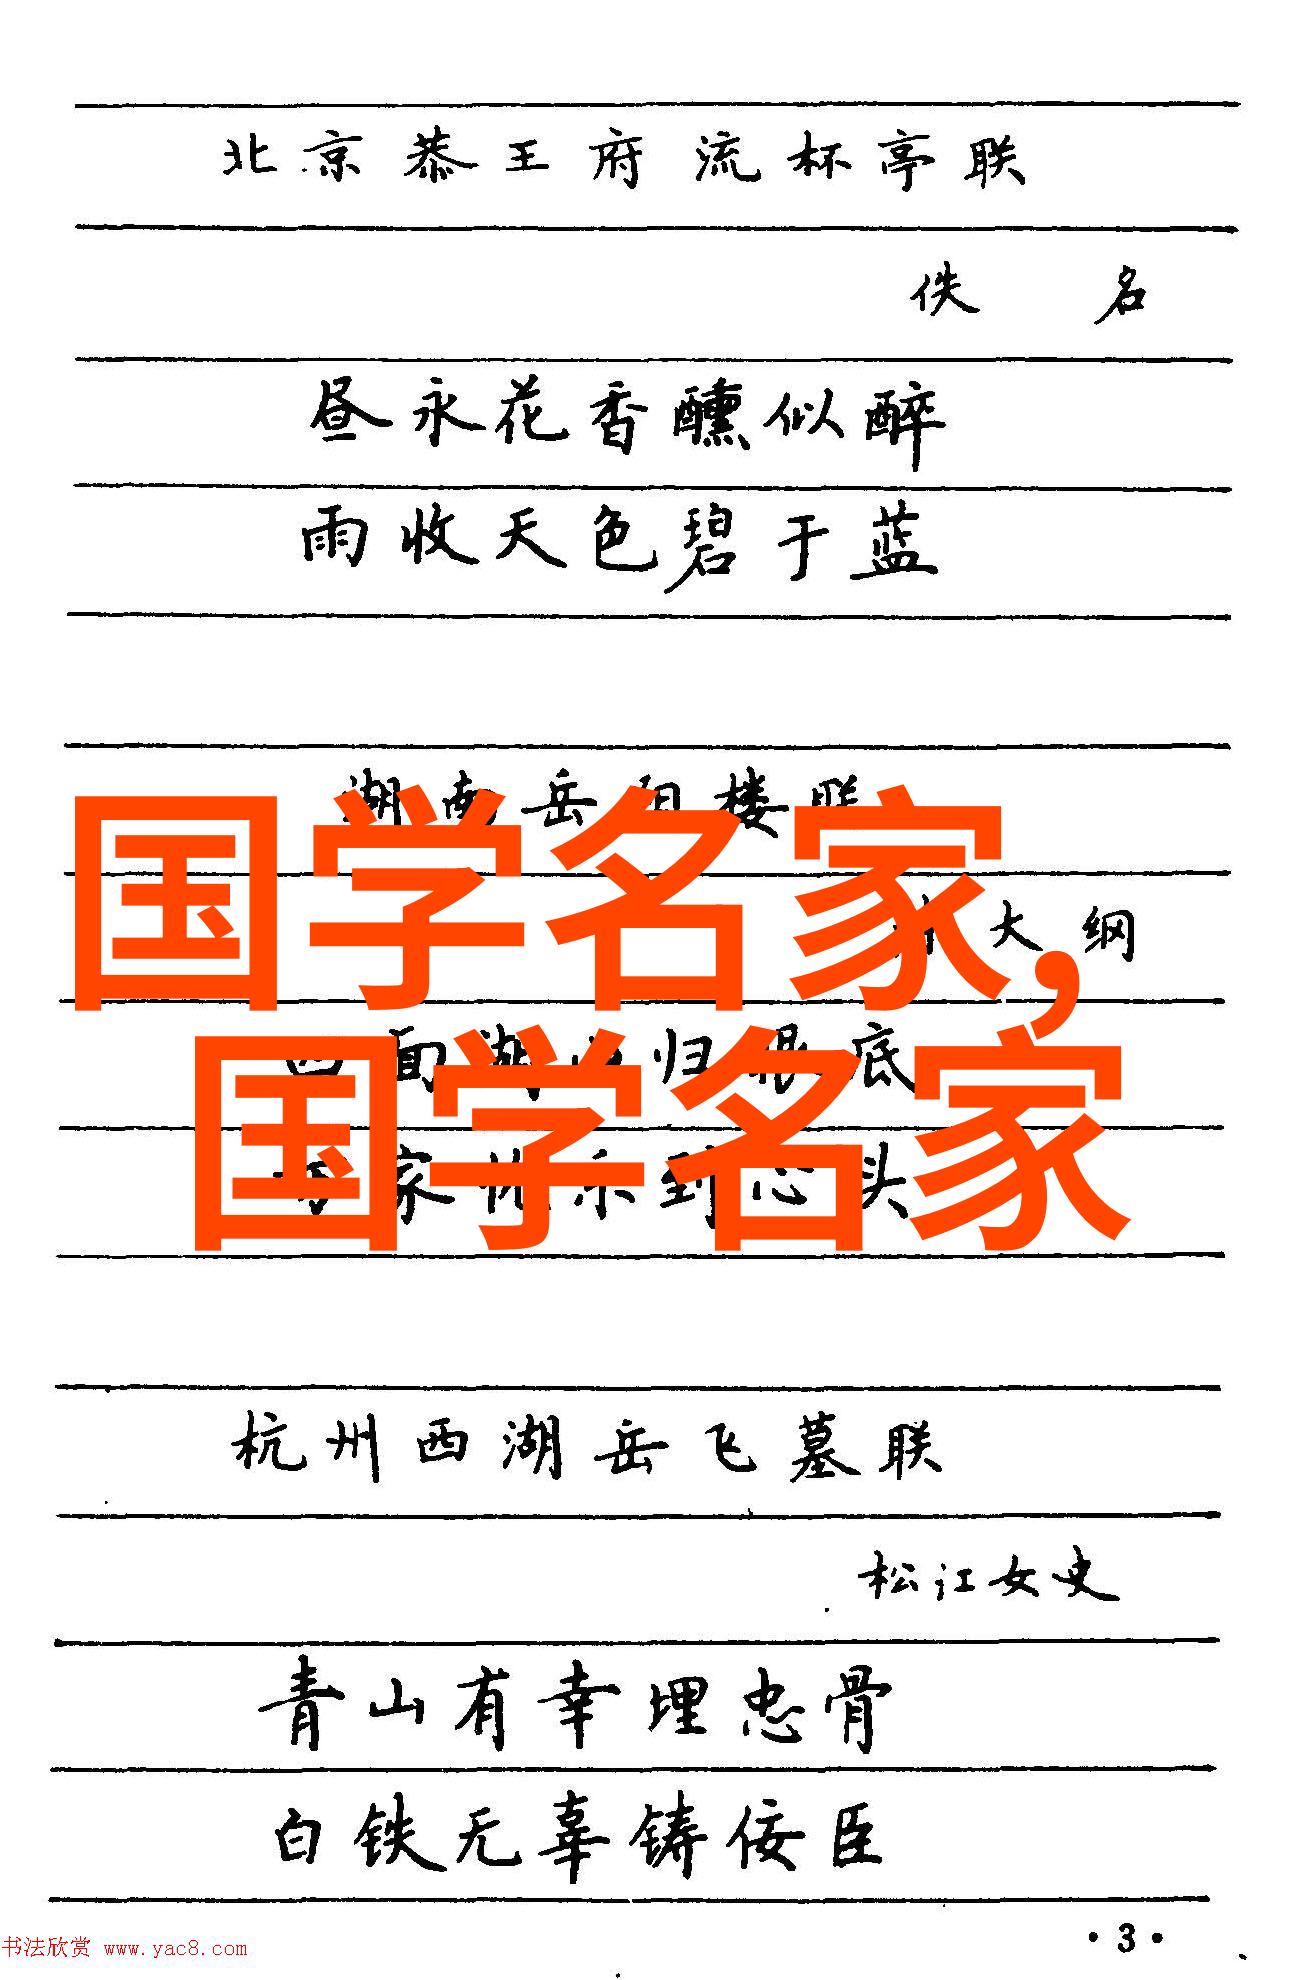 北京恭王府流杯亭联
佚名
昼永花香醺似醉
雨收天色碧于蓝
湖南岳阳楼联
大纲
国学名家,
四面湖山归眼底
国学名家
万家忧乐到心头
杭州西湖岳飞墓联
松江女史
青山有幸埋忠骨
白铁无辜铸佞臣
·3·
书法欣赏 www.yac8.com